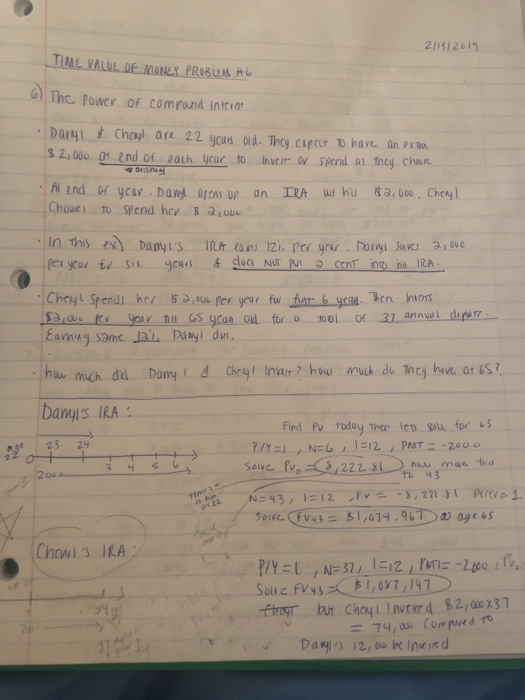 2/13/2019
TIME VALUE OF MONEY PROBLEM #6
6) The power of compound
Darryl & Cheryl are 22 years old. They expect to have an extra
$2,000 at end of each year to invest or spend as they choose
ordinary
At end of year Darryl opens up an IRA w/ his $2,000. Cheryl
chooses to spend her $2,000
In this ex) Darryl's IRA earns 12% per year. Darryl saves 2,000
per year for six years & does NOT put a cent into his IRA.
Cheryl spends her $2,000 per year for first 6 years. Then invests
$2,000 per year till 65 years old for a total of 37 annual deposits.
Earning same 12% Darryl
how much did Darryl & Cheryl Invest? how much do they have at 65?
Darryl's IRA:
Find PV today then for 65
22 0 23 24
3 4 5 6
2000
P/Y=1, N=6, I=12, PMT = -2000
Solve PV0 = 8,222.81 now move this
to 43
N=43, I=12, PV = -8,222.81 P/Y=1
Solve FV43 = $1,074,967 @ age 65
Cheryl's IRA:
P/Y=1, N=37, I=12, PMT= -2000, PV0
Solve FV43 = $1,087,197
but Cheryl Invested $2,000x37
= 74,000 compared to
Darryl's 12,000 he invested